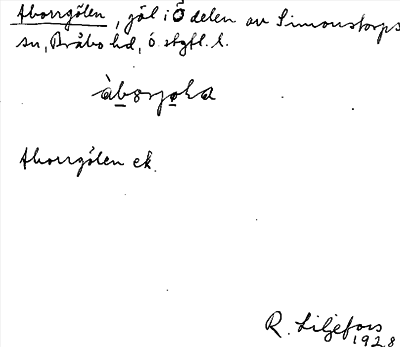 Aborrgölen, göl i Ö delen av Simonstorps
sn, Bråbo hd, ö. stgtl. l.
Aborrgölen ek.
R. Liljefors
1928